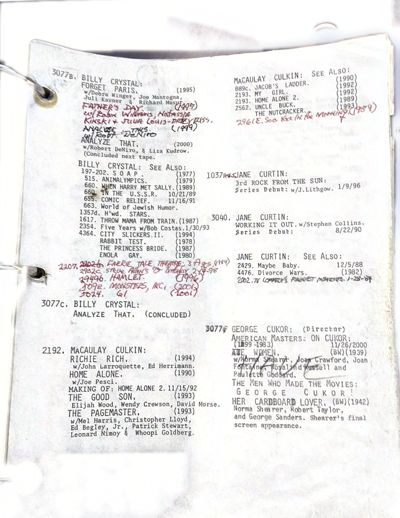 3077B. BILLY CRYSTAL:
FORGET PARIS. (1995)
w/Debra Winger, Joe Mantegna,
Juli Kavner & Richard Masur
FATHER'S DAY. (1997)
w/Robin Williams, Nastassja
Kinski & Julia Louis-Dreyfuss.
ANALYZE THIS. (1999)
w/Robt DeNiro
ANALYZE THAT. (2000)
w/Robert DeNiro, & Liza Kudrow.
(Concluded next tape.
BILLY CRYSTAL: SEE ALSO:
197-202. S O A P. (1977)
515. ANIMALYMPICS. (1979)
660. WHEN HARRY MET SALLY. (1989)
660. IN THE U.S.S.R. 10/21/89
635. COMIC RELIEF. (11/16/91
663. World of Jewish Humor.
1357d. H'wd. STARS.
1617. THROW MAMA FROM TRAIN. (1987)
2354. Five Years w/Bob Costas.1/30/93
4364. CITY SLICKERS.II. (1994)
RABBIT TEST. (1978)
THE PRINCESS BRIDE. (1987)
ENOLA GAY. (1980)
2949b. HAMLET (1996)
3098. MONSTERS, INC. (2001)
3077C. BILLY CRYSTAL:
ANALYZE THAT. (CONCLUDED)
2192. MACAULAY CULKIN:
RICHIE RICH. (1994)
w/John Larroquette, Ed Herrimann.
HOME ALONE. (1990)
w/Joe Pesci.
MAKING OF: HOME ALONE 2.11/15/92
THE GOOD SON. (1993)
Elijah Wood, Wendy Crewson, David Morse.
THE PAGEMASTER. (1993)
w/Mel Harris, Christopher Lloyd,
Ed Begley, Jr., Patrick Stewart,
Leonard Nimoy & Whoopi Goldberg.
MACAULAY CULKIN: SEE ALSO:
889c. JACOB'S LADDER. (1990)
2193. MY GIRL. (1992)
2193. HOME ALONE 2. (1989)
2562. UNCLE BUCK. (1992)
THE NUTCRACKER. (1993)
2961E. See You In The Morning (1989)
JANE CURTIN:
3rd ROCK FROM THE SUN:
Series Debut: w/J.Lithgow. 1/9/96
3040. JANE CURTIN:
WORKING IT OUT. w/Stephen Collins.
Series Debut: 8/22/90
JANE CURTIN: SEE ALSO:
2429. Maybe Baby. 12/5/88
4476. Divorce Wars. (1982)
GEORGE CUKOR: (Director)
AMERICAN MASTERS: ON CUKOR:
(1899-1983) 11/26/2000
THE WOMEN. (BW)(1939)
w/Norma Shearer, Joan Crawford, Joan
Fontaine, Rosalind Russell and
Paulette Goddard.
THE MEN WHO MADE THE MOVIES:
GEORGE CUKOR:
HER CARDBOARD LOVER. (BW)(1942)
Norma Shearer, Robert Taylor,
and George Sanders. Shearer's final
screen appearance.